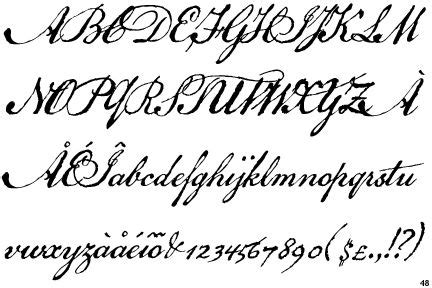 ABCDEFGHIJKLM
NOPQRSTUVWXYZÀ
ÅÉÎabcdefghijklmnopqrstu
vwxyzàåéîõ&1234567890($£.,!?)
48